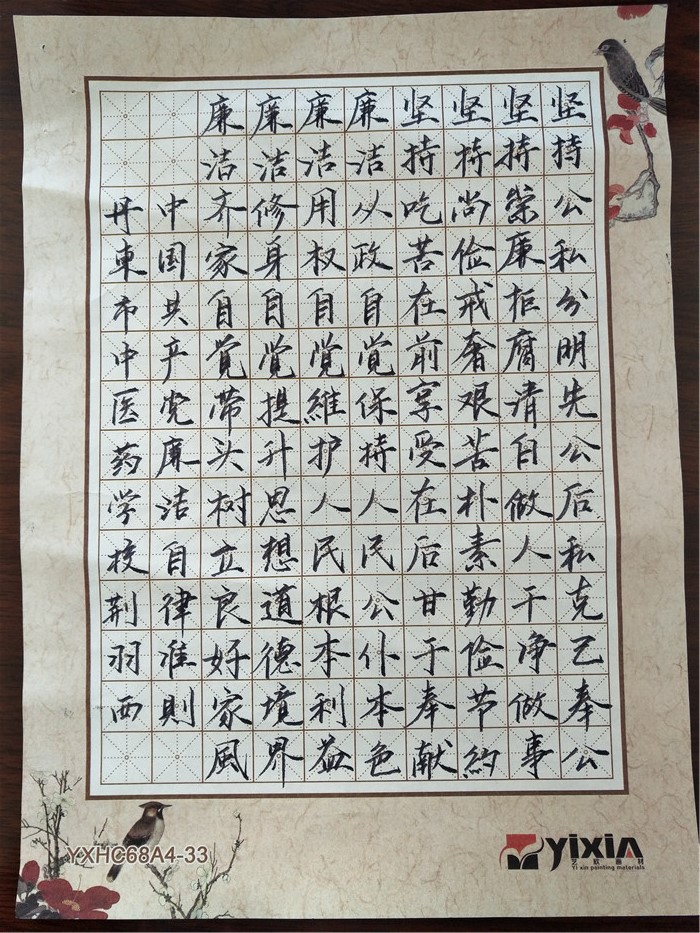 坚持公私分明先公后私克己奉公
坚持崇廉拒腐清白做人干净做事
坚持尚俭戒奢艰苦朴素勤俭节約
坚持吃苦在前享受在后甘于奉献
廉洁从政自觉保持人民公仆本色
廉洁用权自觉維护人民根本利益
廉洁修身自觉提升思想道德境界
廉洁齐家自觉带头树立良好家風
中国共产党廉洁自律准則
丹東市中医药学校荆羽西
YXHC68A4-33
yixin
Yi xin painting materials